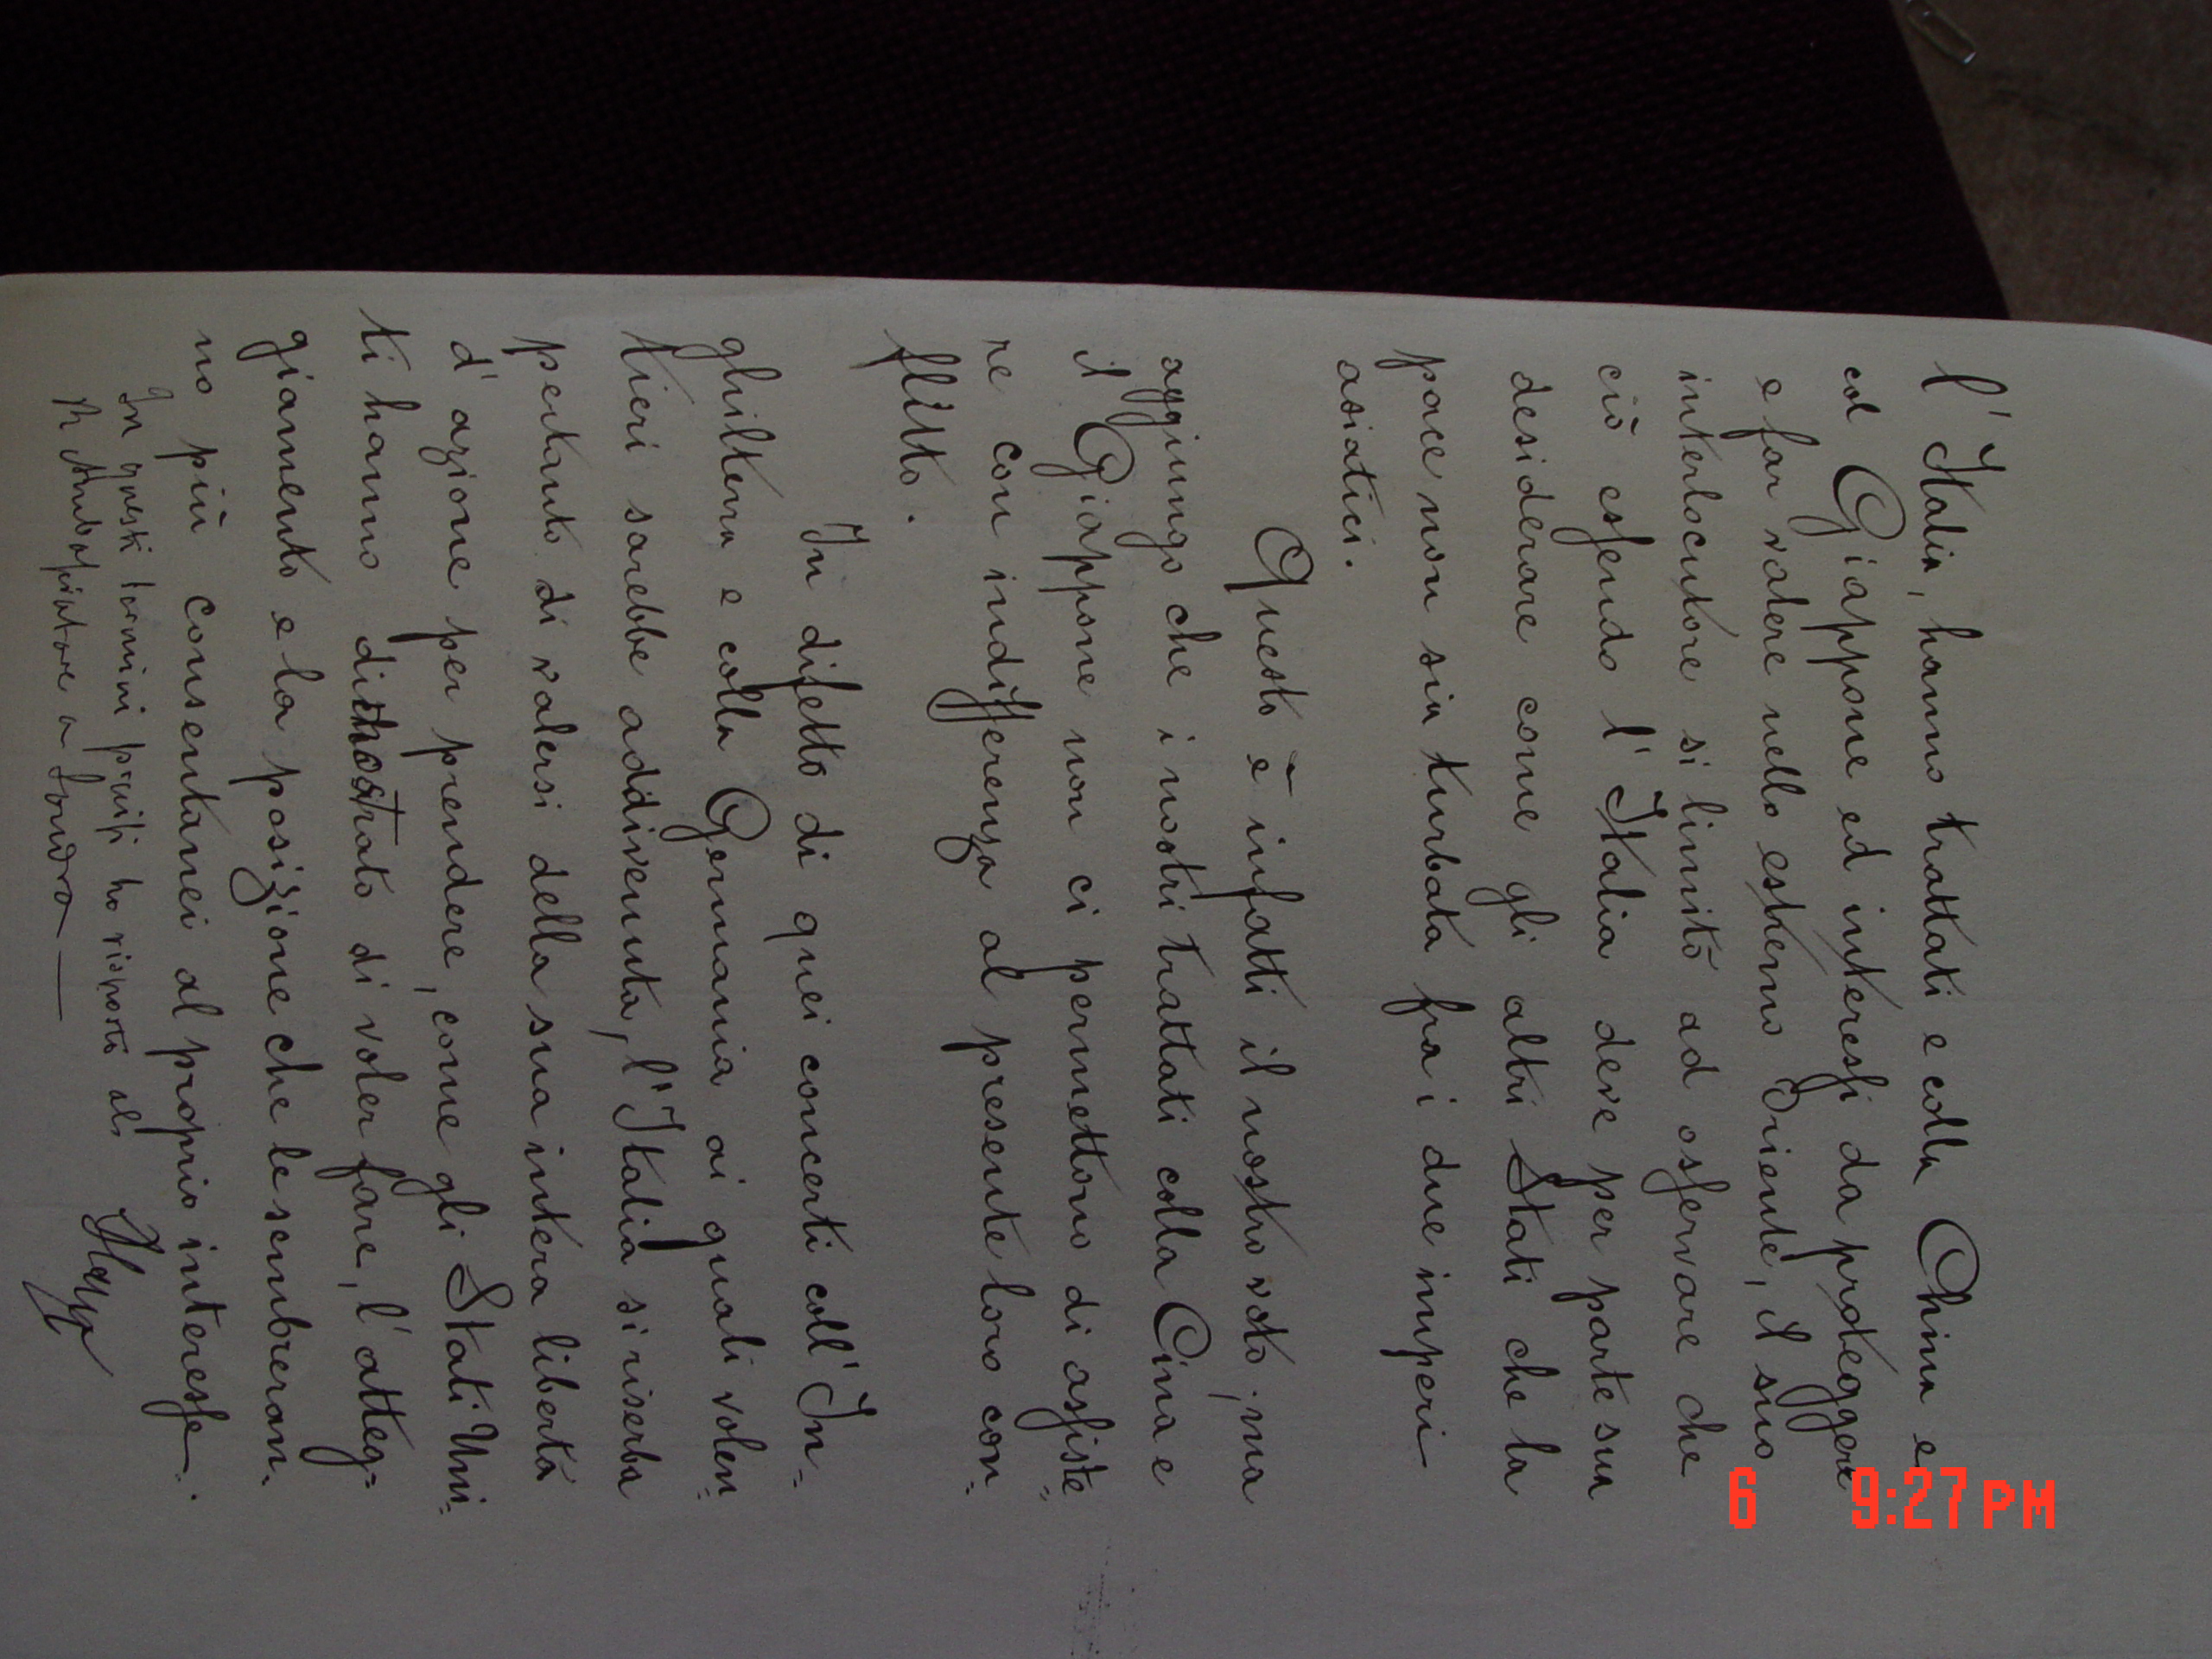 l'Italia, hanno trattati e colla China e
col Giappone ed interessi da proteggere
e far valere nello estremo Oriente, il suo
interlocutore si limitò ad osservare che
ciò essendo l'Italia deve per parte sua
desiderare come gli altri Stati che la
pace non sia turbata fra i due imperi
asiatici.
Questo è infatti il nostro voto; ma
aggiungo che i nostri trattati colla Cina e
il Giappone non ci permettono di assiste=
re con indifferenza al presente loro con=
flitto.
In difetto di quei concerti coll'In=
ghilterra e colla Germania ai quali volen=
tieri sarebbe addivenuta, l'Italia si riserba
pertanto di valersi della sua intera libertà
d'azione per prendere, come gli Stati Uni=
ti hanno dimostrato di voler fare, l'atteg=
giamento e la posizione che le sembreran=
no più consentanei al proprio interesse.
In questi termini precisi ho risposto al
R Ambasciatore a Londra —
6 9:27PM